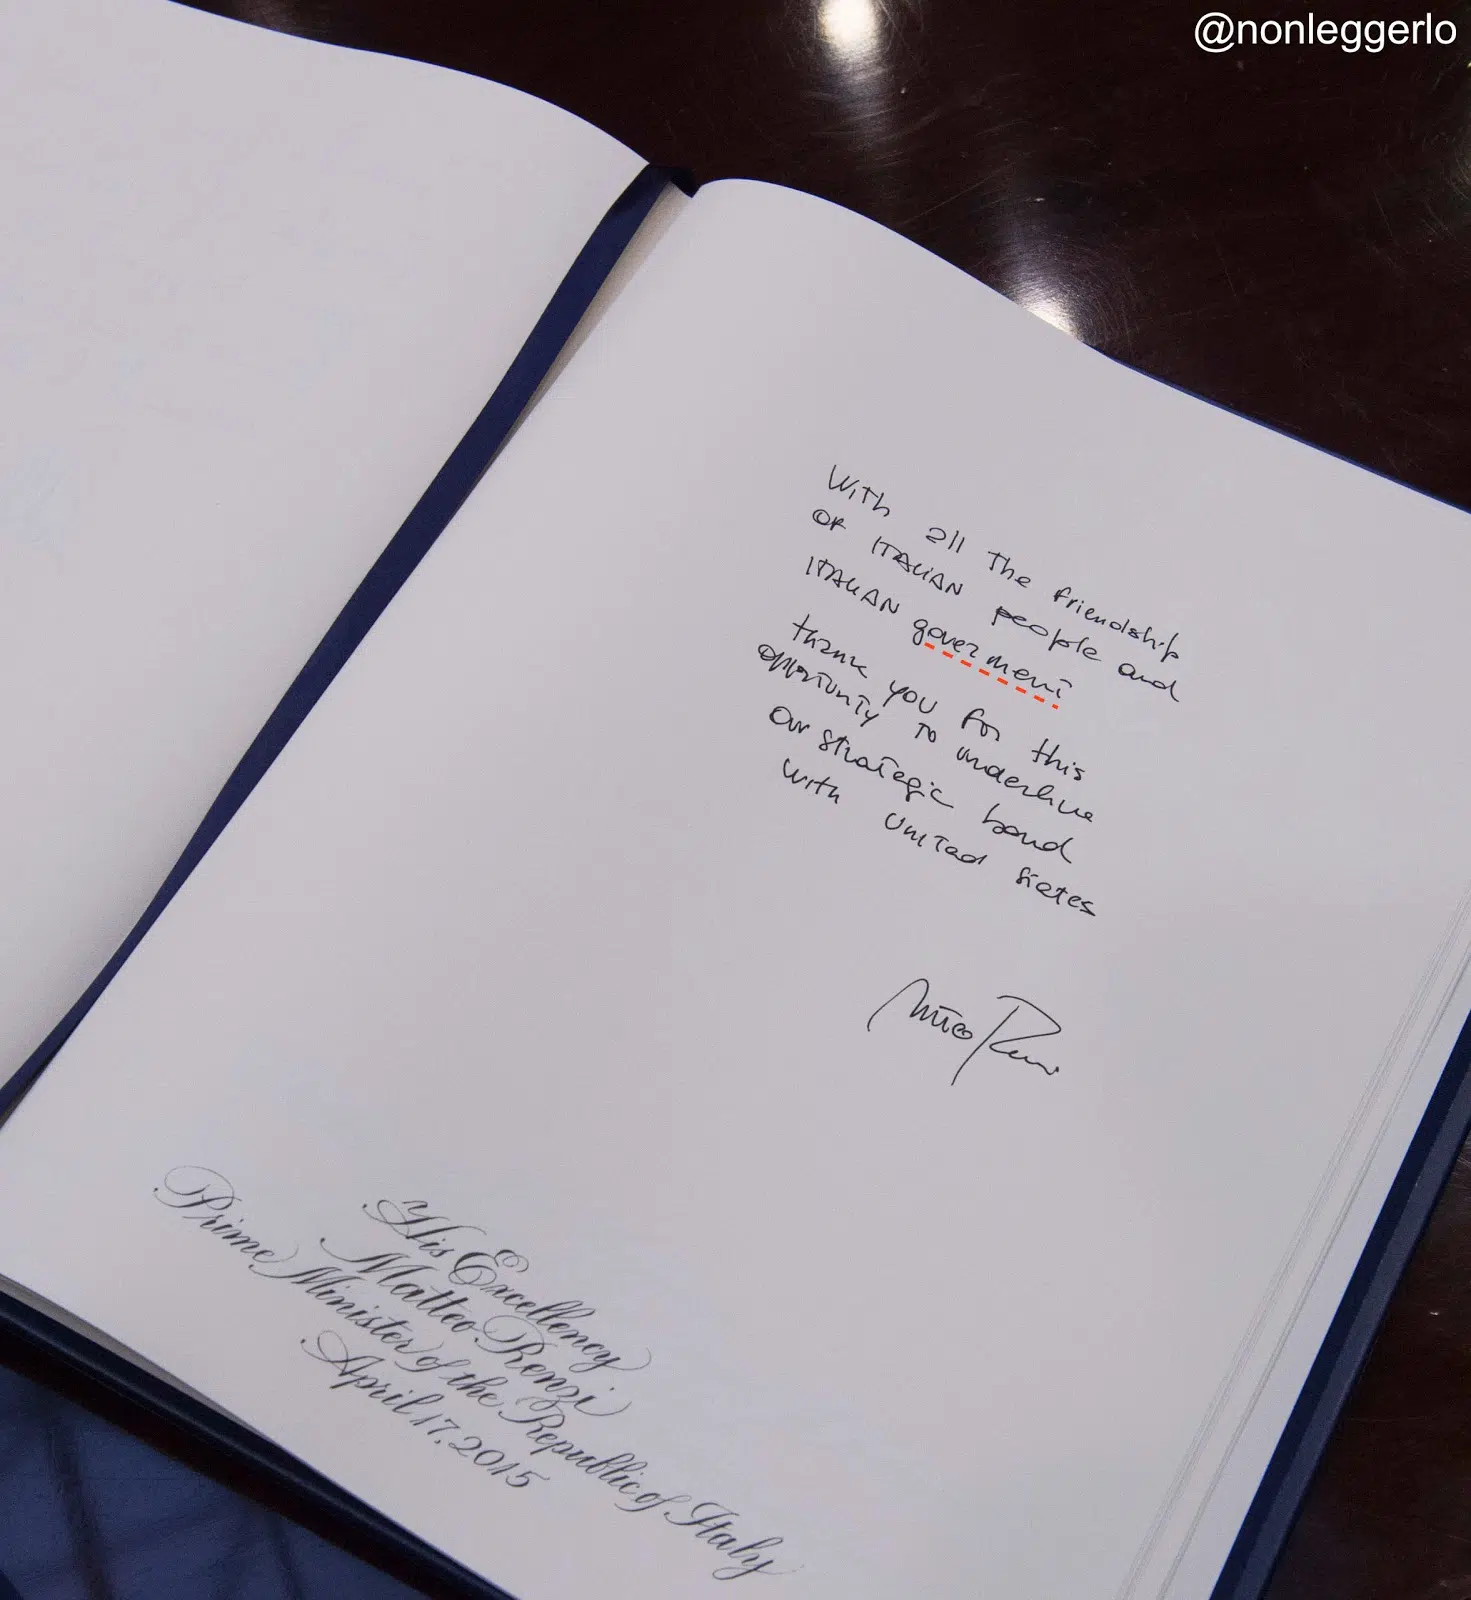 @nonleggerlo
With all the friendship
of ITALIAN people and
ITALIAN goverment
thank you for this
opportunity to underline
our strategic bond
with United States
Matteo Renzi
His Excellency
Matteo Renzi
Prime Minister of the Republic of Italy
April 17, 2015